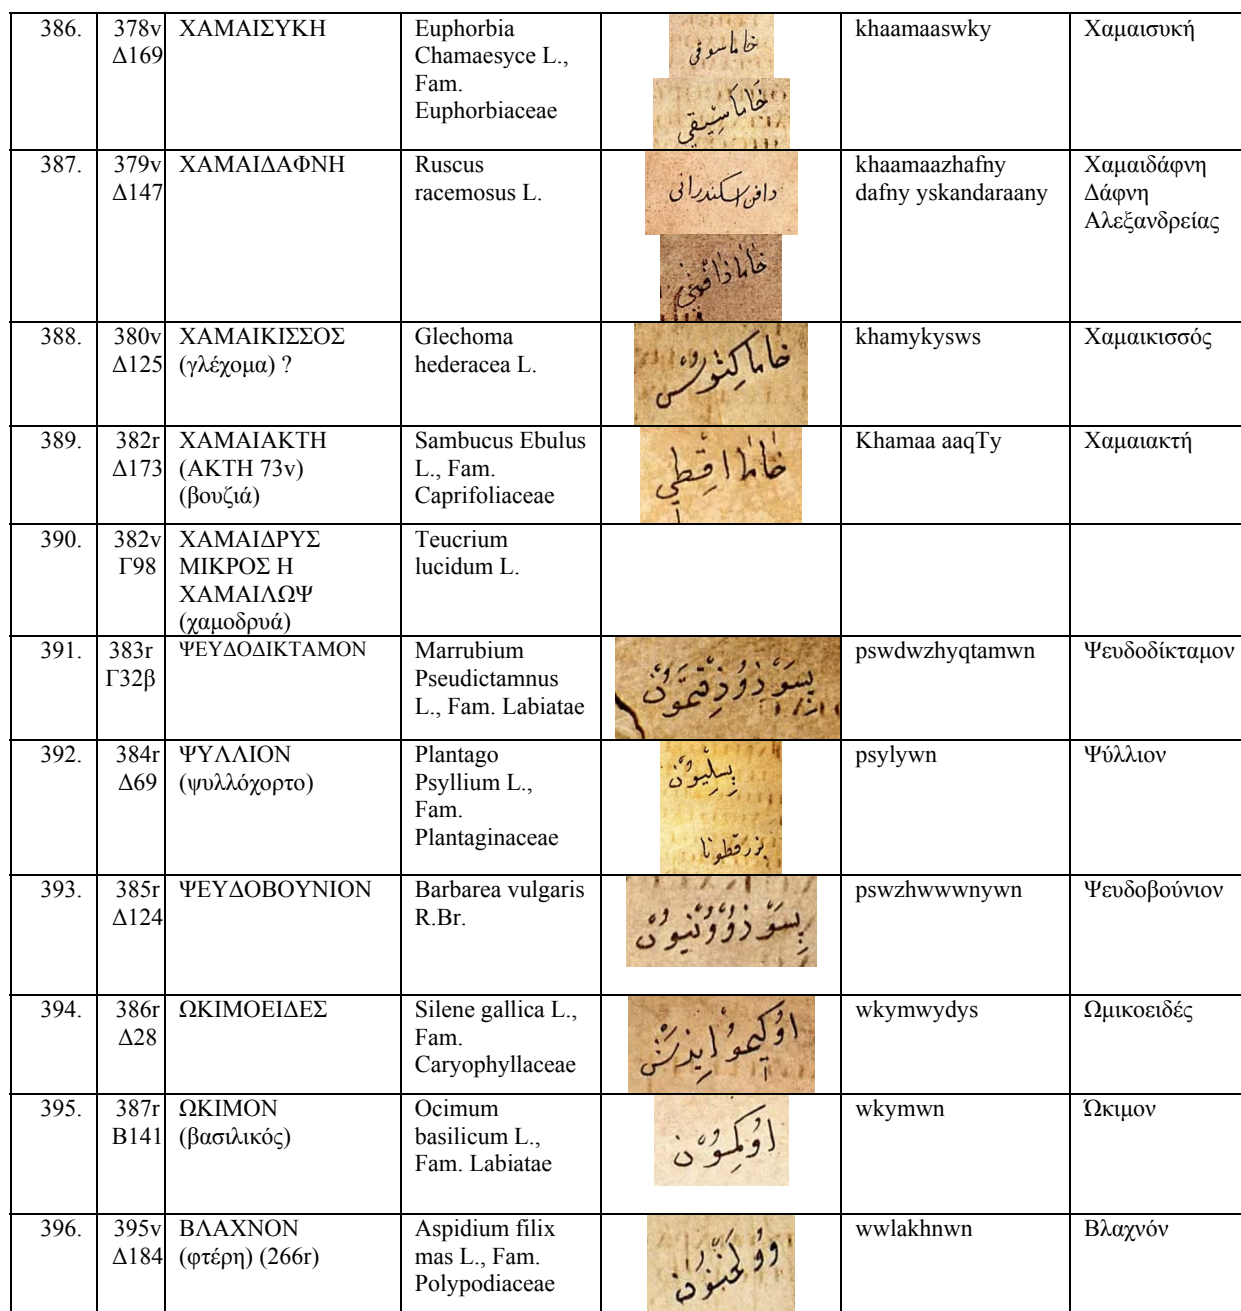 386.
378v
Δ169
ΧΑΜΑΙΣΥΚΗ
Euphorbia
Chamaesyce L.,
Fam.
Euphorbiaceae
خاماسوقى
خَامَاسِيقي
khaamaaswky
Χαμαισυκή
387.
379v
Δ147
ΧΑΜΑΙΔΑΦΝΗ
Ruscus
racemosus L.
دافن اسكندرانى
khaamaazhafny
dafny yskandaraany
Χαμαιδάφνη
Δάφνη
Αλεξανδρείας
388.
380v
Δ125
ΧΑΜΑΙΚΙΣΣΟΣ
(γλέχομα) ?
Glechoma
hederacea L.
khamykysws
Χαμαικισσός
389.
382r
Δ173
ΧΑΜΑΙΑΚΤΗ
(ΑΚΤΗ 73v)
(βουζιά)
Sambucus Ebulus
L., Fam.
Caprifoliaceae
خَامَا اقِطي
Khamaa aaqTy
Χαμαιακτή
390.
382v
Γ98
ΧΑΜΑΙΔΡΥΣ
ΜΙΚΡΟΣ Η
ΧΑΜΑΙΛΩΨ
(χαμοδρυά)
Teucrium
lucidum L.
391.
383r
Γ32β
ΨΕΥΔΟΔΙΚΤΑΜΟΝ
Marrubium
Pseudictamnus
L., Fam. Labiatae
pswdwzhyqtamwn
Ψευδοδίκταμον
392.
384r
Δ69
ΨΥΛΛΙΟΝ
(ψυλλόχορτο)
Plantago
Psyllium L.,
Fam.
Plantaginaceae
بِسِلْيُونْ
بزرقطونا
psylywn
Ψύλλιον
393.
385r
Δ124
ΨΕΥΔΟΒΟΥΝΙΟΝ
Barbarea vulgaris
R.Br.
بِسَوْذُوُوُنْيُونْ
pswzhwwwnywn
Ψευδοβούνιον
394.
386r
Δ28
ΩΚΙΜΟΕΙΔΕΣ
Silene gallica L.,
Fam.
Caryophyllaceae
wkymwydys
Ωμικοειδές
395.
387r
Β141
ΩΚΙΜΟΝ
(βασιλικός)
Ocimum
basilicum L.,
Fam. Labiatae
اوُكِمُونْ
wkymwn
Ώκιμον
396.
395v
Δ184
ΒΛΑΧΝΟΝ
(φτέρη) (266r)
Aspidium filix
mas L., Fam.
Polypodiaceae
wwlakhnwn
Βλαχνόν